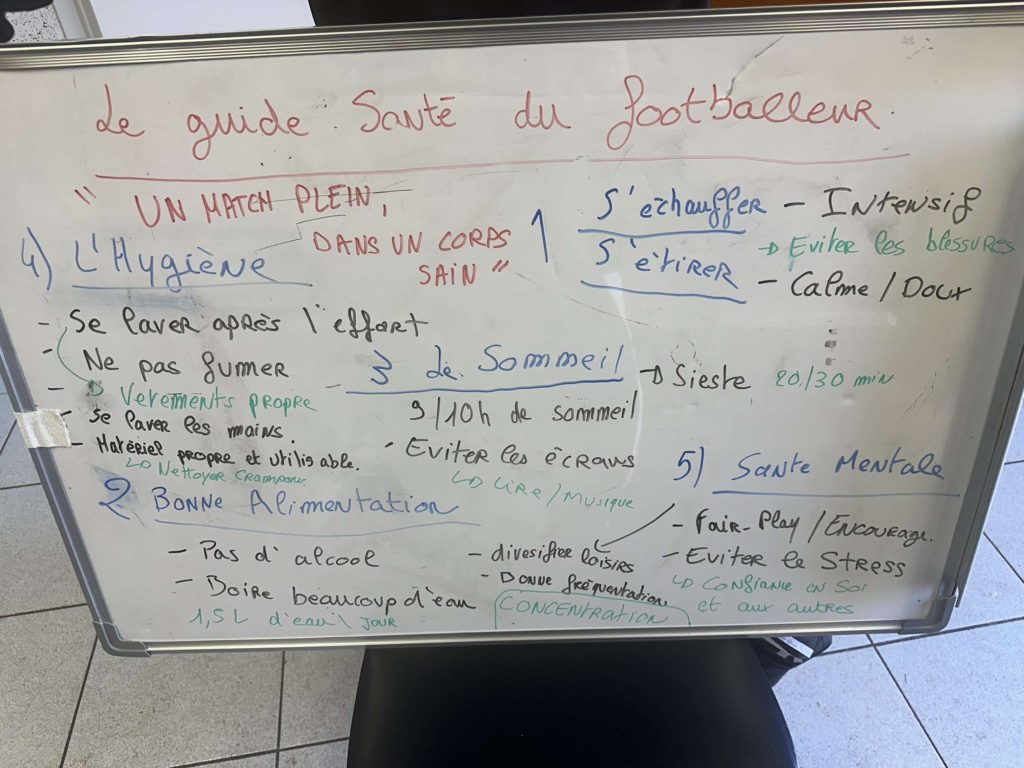 Le guide Santé du footballeur.
" UN MATCH PLEIN,
DANS UN CORPS
SAIN "
1 S'échauffer - Intensif
→ Eviter les blessures
S'étirer - Calme / Doux
4) L'Hygiène
- Se laver après l'effort
- Ne pas fumer
→ Vetements propre
- Se laver les mains.
- Matériel propre et utilisable.
↳ Nettoyer crampons.
3 Le Sommeil → Sieste 20/30 min
9/10h de sommeil
- Eviter les écrans
↳ Lire / Musique
2 Bonne Alimentation
- Pas d'alcool
- Boire beaucoup d'eau
1,5L d'eau \ jour
5) Sante Mentale
- Fair-Play / Encourage.
- Eviter le Stress
↳ Confiance en Soi
et aux autres
- divesifier loisirs
- Bonne fréquentation.
CONCENTRATION